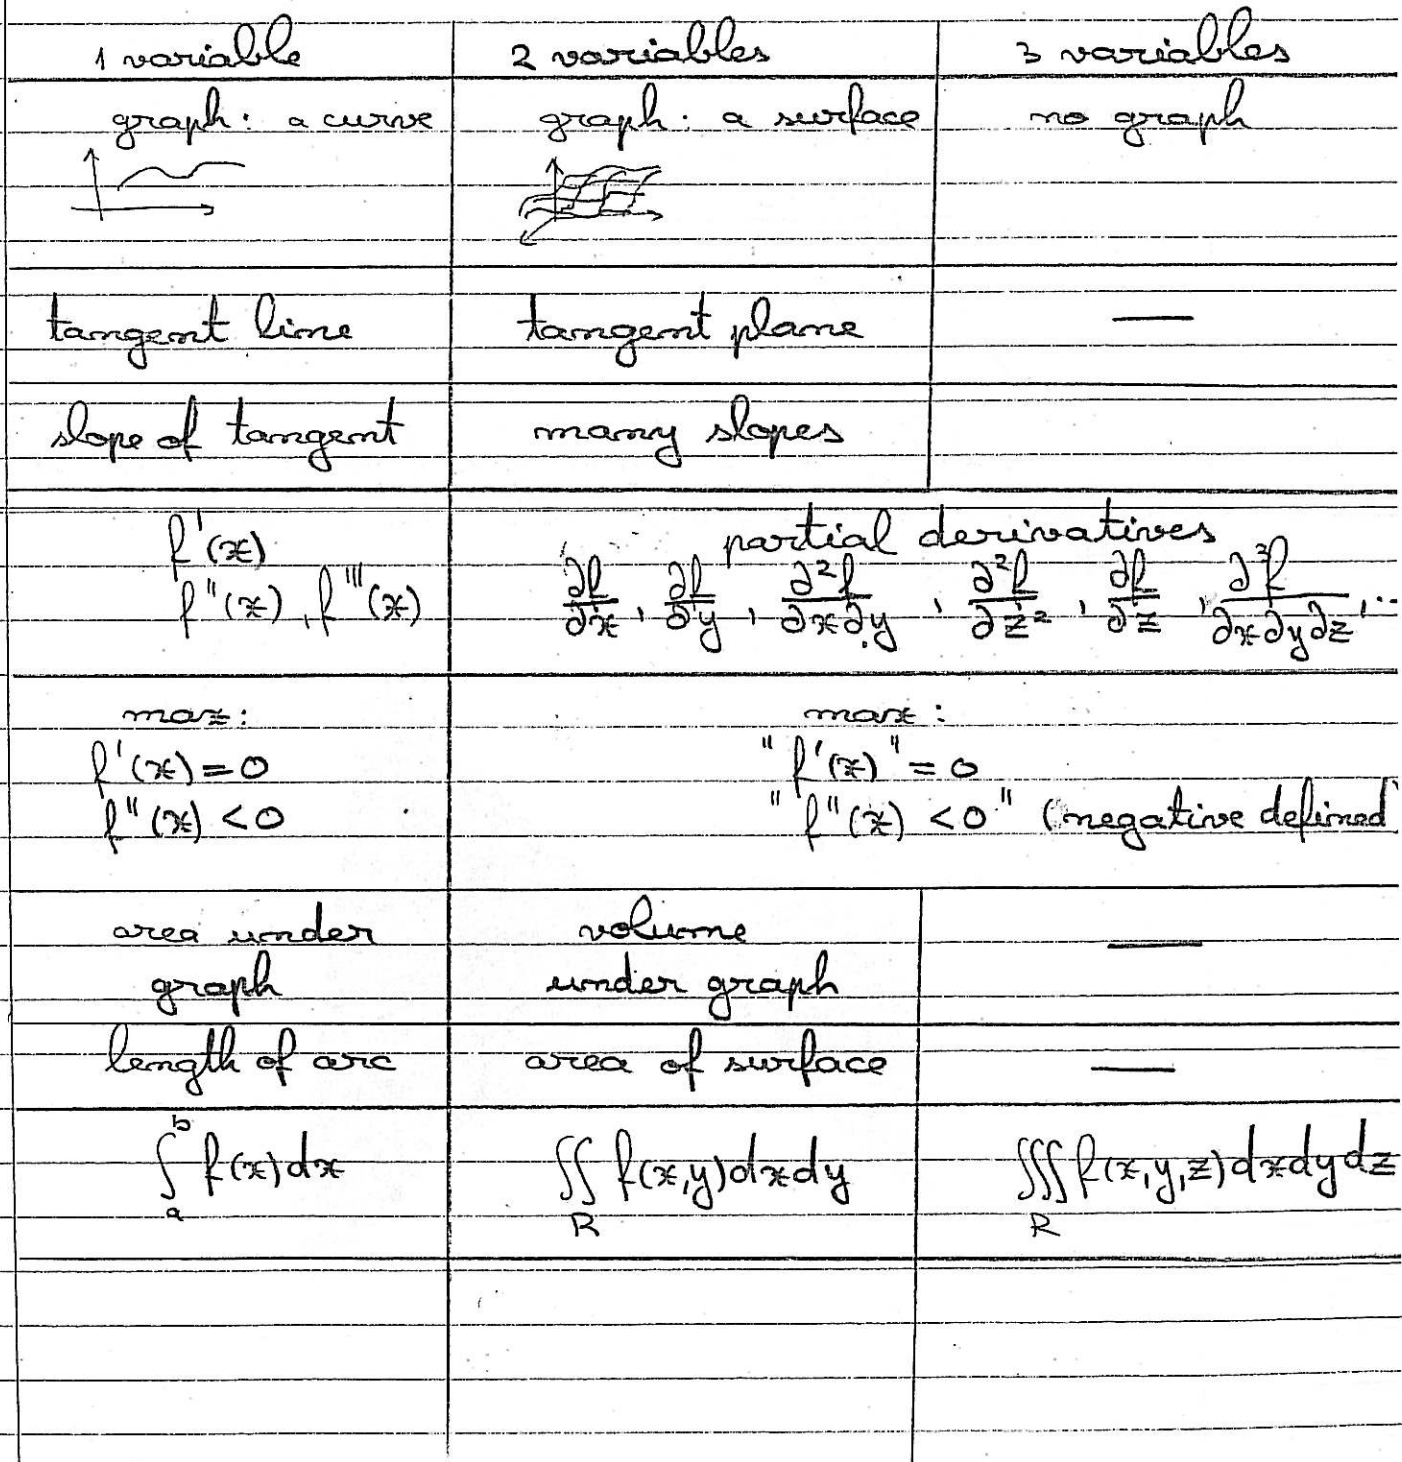 1 variable 2 variables 3 variables
graph: a curve graph: a surface no graph
tangent line tangent plane —
slope of tangent many slopes
f'(x) partial derivatives
f''(x), f'''(x) ∂f/∂x, ∂f/∂y, ∂²f/∂x∂y, ∂²f/∂z², ∂f/∂z, ∂³f/∂x∂y∂z, ..
max: max:
f'(x) = 0 "f'(x)" = 0
f''(x) < 0 "f''(x) < 0" (negative defined
area under volume —
graph under graph
length of arc area of surface —
∫_a^b f(x)dx ∬_R f(x,y)dxdy ∭_R f(x,y,z)dxdydz